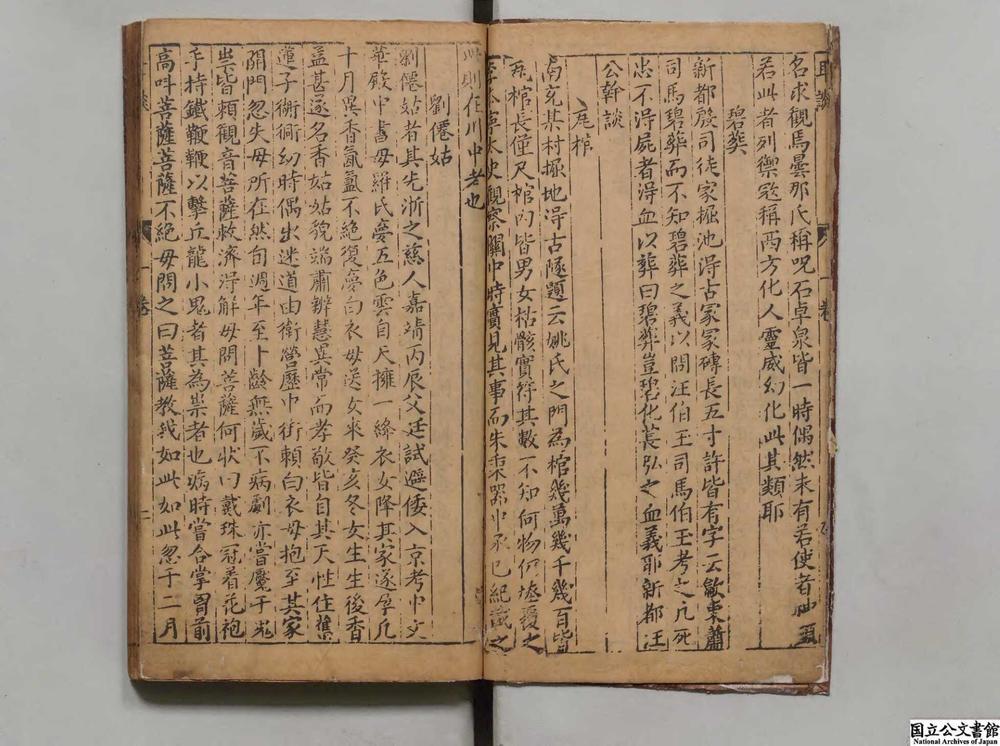 耳談
名求觀馬曇那氏稱呪石卓泉皆一時偶然未有若使者神頭
若此者列禦寇稱西方化人靈威幻化此其類耶
碧葬
新都殷司徒家掘池得古冢冢磚長五寸許皆有字云歙東蕭
司馬碧葬而不知碧葬之義以問汪伯玉司馬伯玉考之凡死
忠不得屍者得血以葬曰碧葬豈碧化萇弘之血義耶新都汪
公幹談
瓦棺
南充某村掘地得古隧題云姚氏之門為棺幾萬幾千幾百皆
瓦棺長僅尺棺內皆男女枯骸實符其數不知何物何故瘞之
李本寧太史觀察關中時實見其事而朱秉器中丞已紀識之
此則在川中者也
劉僊姑
劉僊姑者其先浙之慈人嘉靖丙辰父廷試避倭入京考中文
華殿中書母羅氏夢五色雲自天擁一絳衣女降其家遂孕凡
十月異香氤氳不絕復夢白衣母送女來癸亥冬女生生後香
益甚遂名香姑姑貌端肅辯慧異常而孝敬皆自其天性住舊
蓮子衚衕幼時偶出迷道由衛營歷中街賴白衣母抱至其家
閉門忽失母所在然自週年至卜齡無歲不病劇亦嘗魘于鬼
祟皆賴觀音菩薩救濟得解母問菩薩何狀曰戴珠冠着花袍
手持鐵鞭鞭以擊丘龍小鬼者其為祟者也病時嘗合掌胷前
高呌菩薩菩薩不絕母問之曰菩薩教我如此如此忽于二月
卷一
二
国立公文書館
National Archives of Japan